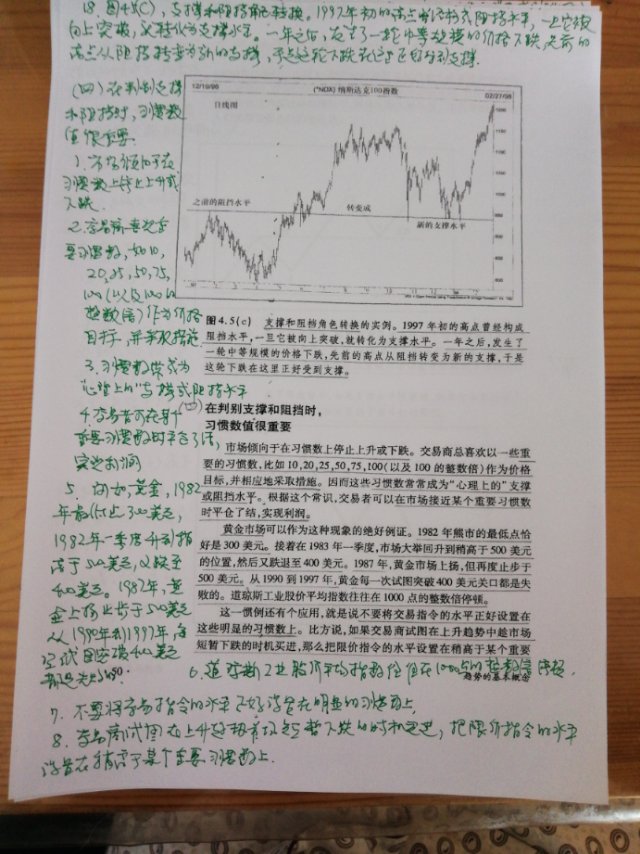 18. 图4.5(C), 支撑和阻挡角色转换。1997年初的高点曾经形成阻挡水平, 一旦它被
向上突破, 就转化为支撑水平。一年之后, 发生了一轮中等规模的价格下跌, 先前的
高点从阻挡转变为新的支撑, 于是这轮下跌在这里正好受到支撑.
(四) 在判别支撑
和阻挡时, 习惯数
值很重要.
1. 市场倾向于在
习惯数上停止上升或
下跌.
要习惯数, 如10,
20, 25, 50, 75,
100(以及100的
整数倍)作为价格
目标, 并采取措施
3. 习惯数常成为
"心理上的"支撑或阻挡水平
4. 交易者可在某个
重要习惯数时平仓了结,
实现利润
5. 例如, 黄金, 1982
年最低点300美元,
1983年一季度升到稍
高于500美元, 又跌至
400美元。1987年, 黄
金上扬止步于500美元
从1990年到1997年, 每
次试图突破400美元
都是失败.
12/19/96
(^NDX) 纳斯达克100指数
02/27/98
日线图
之前的阻挡水平
转变成
新的支撑水平
图4.5(c) 支撑和阻挡角色转换的实例。1997年初的高点曾经构成
阻挡水平，一旦它被向上突破，就转化为支撑水平。一年之后，发生了
一轮中等规模的价格下跌，先前的高点从阻挡转变为新的支撑，于是
这轮下跌在这里正好受到支撑。
(四)在判别支撑和阻挡时，
习惯数值很重要
市场倾向于在习惯数上停止上升或下跌。交易商总喜欢以一些重
要的习惯数，比如10,20,25,50,75,100(以及100的整数倍)作为价格
目标，并相应地采取措施。因而这些习惯数常常成为“心理上的”支撑
或阻挡水平。根据这个常识，交易者可以在市场接近某个重要习惯数
时平仓了结，实现利润。
黄金市场可以作为这种现象的绝好例证。1982年熊市的最低点恰
好是300美元。接着在1983年一季度，市场大举回升到稍高于500美元
的位置，然后又跌退至400美元。1987年，黄金市场上扬，但再度止步于
500美元。从1990到1997年，黄金每一次试图突破400美元关口都是失
败的。道琼斯工业股价平均指数往往在1000点的整数倍停顿。
这一惯例还有个应用，就是说不要将交易指令的水平正好设置在
这些明显的习惯数上。比方说，如果交易商试图在上升趋势中趁市场
短暂下跌的时机买进，那么把限价指令的水平设置在稍高于某个重要
趋势的基本概念
6. 道琼斯工业股价平均指数往往在1000点的整数倍停顿.
7. 不要将交易指令的水平正好设置在明显的习惯数上.
8. 交易商试图在上升趋势市场短暂下跌的时机买进, 把限价指令的水平
设置在稍高于某个重要习惯数上.